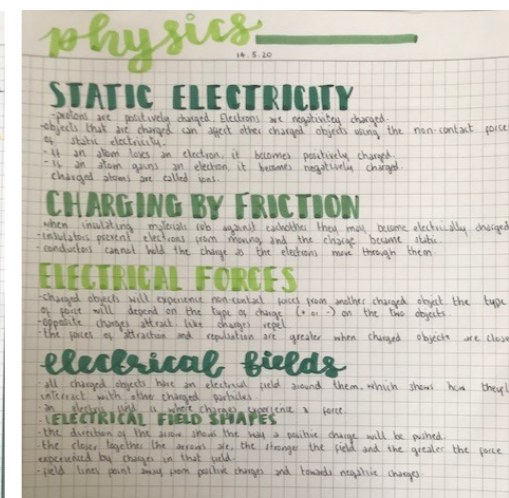 physics
14.5.20
STATIC ELECTRICITY
-protons are positively charged. Electrons are negatively charged.
-objects that are charged can affect other charged objects using the non-contact force
of static electricity.
-if an atom loses an electron, it becomes positively charged.
-if an atom gains an electron, it becomes negatively charged.
charged atoms are called ions.
CHARGING BY FRICTION
when insulating materials rub against eachother they may become electrically charged
-insulators prevent electrons from moving and the charge become static.
-conductors cannot hold the charge as the electrons move through them
ELECTRICAL FORCES
-charged objects will experience non-contact forces from another charged object. the type
of force will depend on the type of charge (+ or -) on the two objects.
-opposite charges attract like charges repel
-the forces of attraction and repulsion are greater when charged objects are close
electrical fields
-all charged objects have an electrical field around them, which shows how they'l
interact with other charged particles.
-an electric field is where charges experience a force.
ELECTRICAL FIELD SHAPES
-the direction of the arrow shows the way a positive charge will be pushed.
-the closer together the arrows are, the stronger the field and the greater the force
experienced by charges in that field.
-field lines point away from positive charges and towards negative charges.